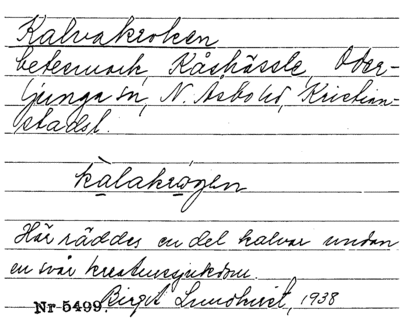 Kalvakroken
betesmark, Kåshässle, Oder-
ljunga sn, N. Åsbo hd, Kristian-
stadsl.
kalakrogen
Här räddes en del kalvar undan
en svår kreatursjukdom.
Nr 5499. Birgit Lundkvist, 1938